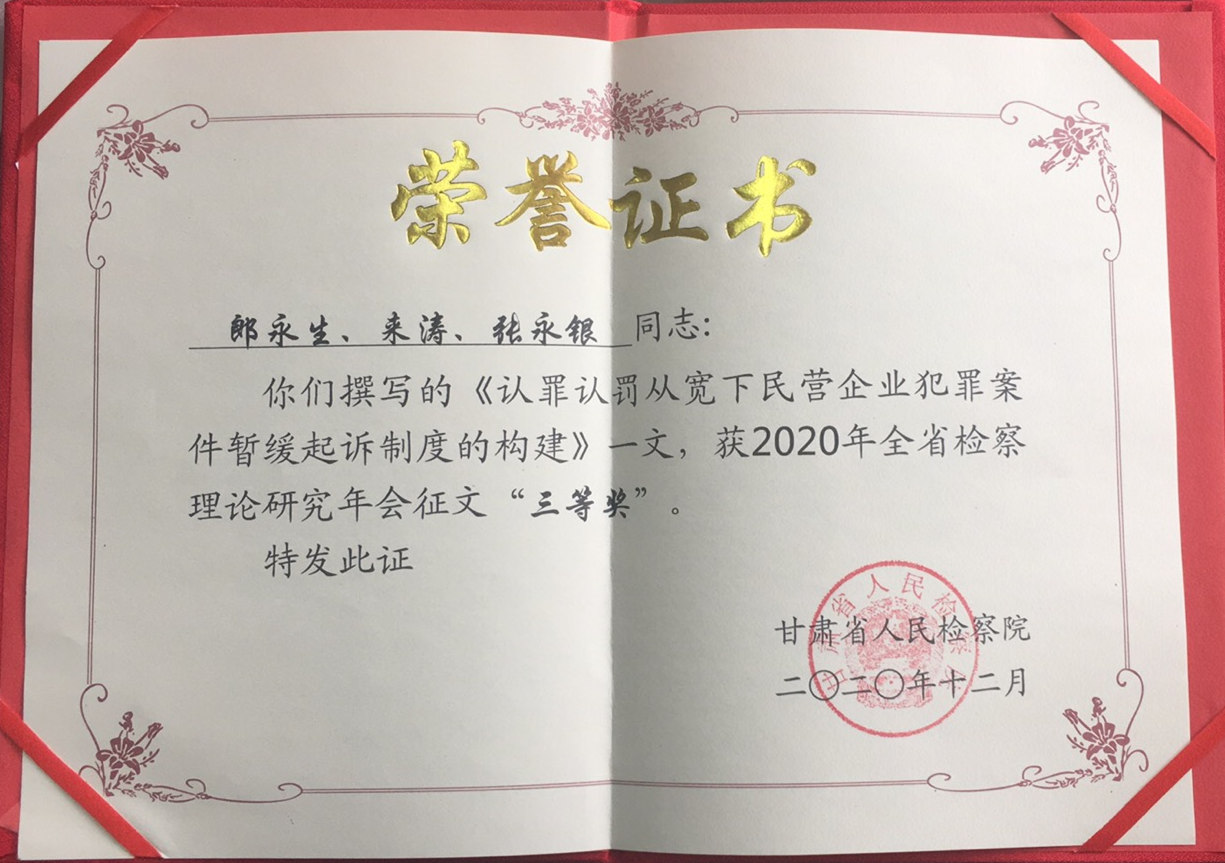 荣誉证书
郎永生、来涛、张永银 同志:
你们撰写的《认罪认罚从宽下民营企业犯罪案
件暂缓起诉制度的构建》一文，获2020年全省检察
理论研究年会征文“三等奖”。
特发此证
甘肃省人民检察院
甘肃省人民检察院
二〇二〇年十二月